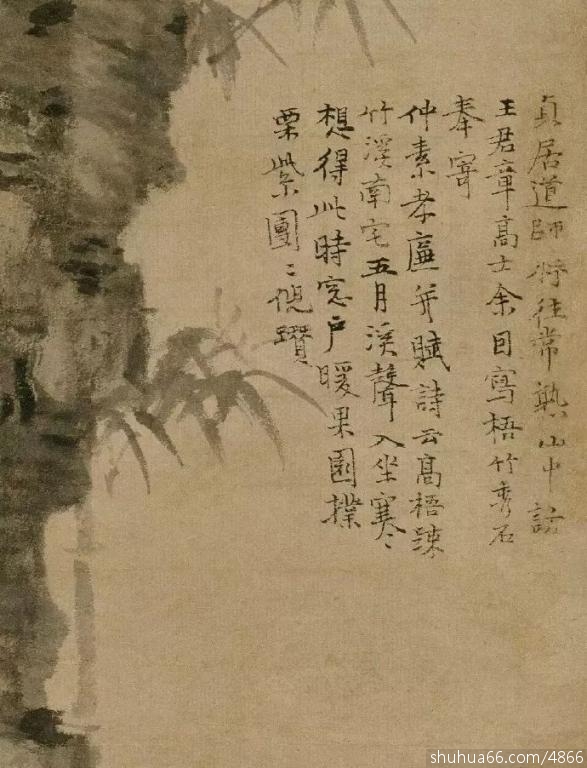 貞居道師將往常熟山中訪
王君章高士余因寫梧竹秀石
奉寄
仲素孝廉并賦詩云高梧踈
竹溪南宅五月溪聲入坐寒
想得此時窓戶暖果園撲
栗紫團〻倪瓚
shuhua66.com/4866